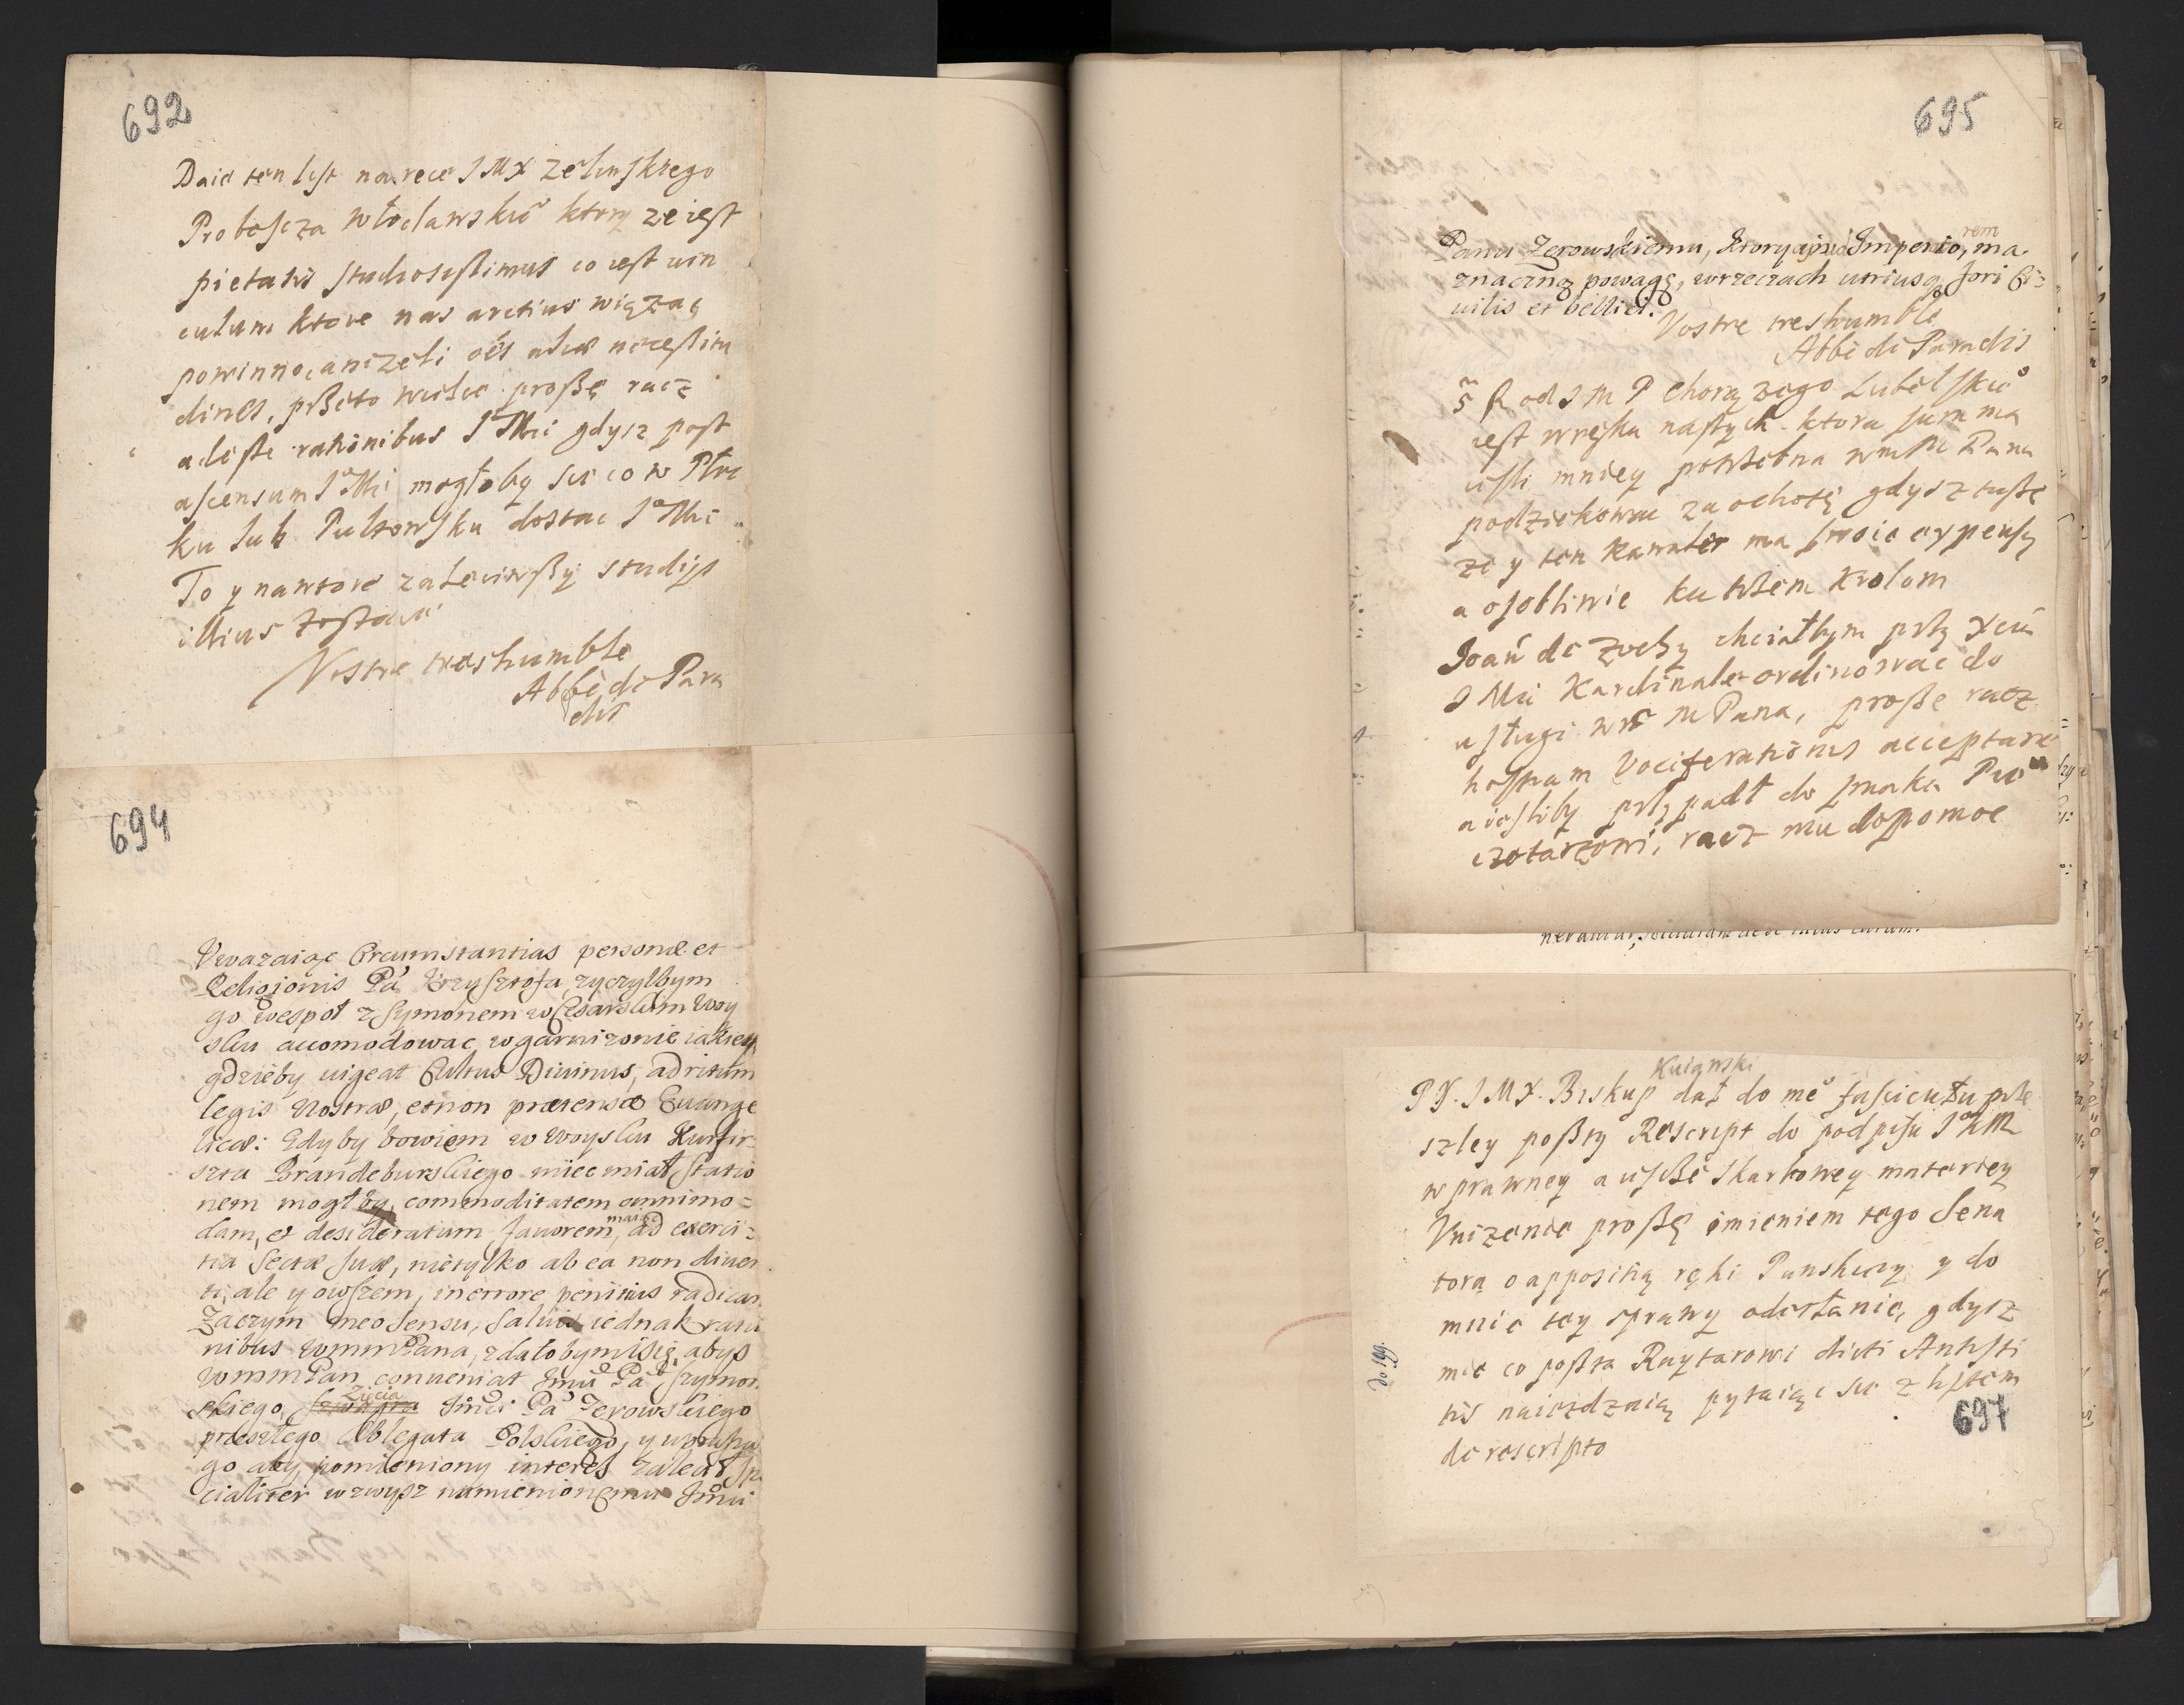 692
Daie ten list na rece J M X Zelinskiego
Proboscza Włocławskiº ktory ze iest
pietatis studiosissimus co iest uin
culum ktore nas arctius wiązac
powinno, anizeli oēs aliæ necessitu
dines, przeto wielce proszę racz
adesse rationibus JºMci gdysz post
ascensum JºMci mogłoby sie co w Płoc
ku lub Pułtowsku dostac JºMci
To y nawtore zaleciwszy studijs
illius zostaie
Vostre treshumble
Abbè de Para
dis
694
Uwazaiąc Circumstantias personæ et
Religionis Pá Krzysztofa, zyczyłbym
go wespoł z Symonem w Cesarskim Woy
sku accomodowac, w garnizonie iakiey
gdzieby uigeat Cultus Diuinus, ad ritum
legis Nostræ, et non prætensæ Euange
licæ: Gdyby bowiem w Woysku Kurfir
szta Brandeburskiego miec miał statio
nem mogłby, commoditatem omnimo=
dam, et desideratum fauorem, ad exerci=
tia Sectæ suæ, nietylko ab ea non diuer
ti, ale y owszem, in errore penitius radicari
Zaczym meo sensu, saluis iednak ratio
nibus WmmPana, zdałobymisię, abys
WmmPan conueniat Jmci Pá Szymon
skiego, Zięcia Jmci Pá Zerowskiego
przeszłego Ablegata Polskiego, y uprosił
go aby pomieniony interes zalecał spe
cialiter wzwysz namienionemu Jmci
695
Panu Zerowskiemu, ktory apud Imperiorem, ma
znaczną powagę, w rzeczach utriusq fori Ci=
uilis et bellici.
Vostre treshumble
Abbè de Paradis
od J M P Chorązego Lubelskiº
iest w ręku nastych ktora summa
iesli mniey potrzebna wmM Panu
podziekowac za ochotę gdysz tuszę
ze y ten Kawaler ma swoie expensy
a osobliwie ku trzem Krolom
Joań de Zuchy chciałbym przy Xciu
J Mci Kardinale ordinowac do
usługi wm M Pana, proszę racz
hostiam Vociferationis acceptare
a iesliby przypadł do smaku
racz mu dopomoc
Kuiawski
P X. J M X. Biskup dał do meº fascicułu prze
szley poszty Rescript do podpisu JºKM
w prawney a iescze skarbowey materiey
Unizenie proszę imieniem tego Sena
tora o appositią ręki Panskiey y do
mnie tey sprawy odesłanie, gdysz
mie co poszta Raytarowi dicti Antisti
tis naiezdzaią pytaiąc sie z listem
de rescripto
do 199.
697